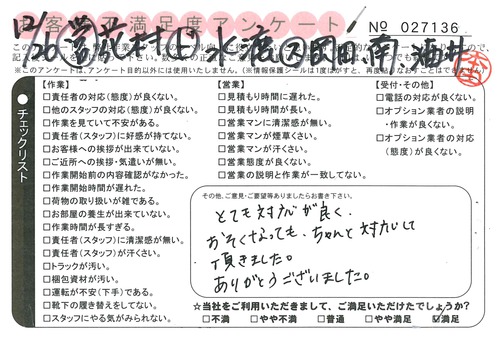 お客様不満足度アンケート
№ 027136
12/20 ㊢
※このアンケートは、アンケート目的以外には使用いたしません。
チェックリスト
【作業】
□責任者の対応(態度)が良くない。
□他のスタッフの対応(態度)が良くない。
□作業を見ていて不安がある。
□責任者(スタッフ)に好感が持てない。
□お客様への挨拶が出来ていない。
□ご近所への挨拶・気遣いが無い。
□作業開始前の内容確認がなかった。
□作業開始時間が遅れた。
□荷物の取り扱いが雑である。
□お部屋の養生が出来ていない。
□作業時間が長すぎる。
□責任者(スタッフ)に清潔感が無い。
□責任者(スタッフ)が汗くさい。
□トラックが汚い。
□梱包資材が汚い。
□運転が不安(下手)である。
□靴下の履き替えをしてない。
□スタッフにやる気がみられない。
【営業】
□見積もり時間に遅れた。
□見積もり時間が長い。
□営業マンに清潔感が無い。
□営業マンが煙草くさい。
□営業マンが汗くさい。
□営業態度が良くない。
□営業の説明と作業が一致してない。
【受付・その他】
□電話の対応が良くない。
□オプション業者の説明
・作業が良くない。
□オプション業者の対応
(態度)が良くない。
その他、ご意見・ご要望等ありましたらお書き下さい。
とても対応が良く、
おそくなっても、ちゃんと対応して
頂きました。
ありがとうございました。
☆当社をご利用いただきまして、ご満足いただけたでしょうか?
□不満 □やや不満 □普通 □やや満足 ☑満足